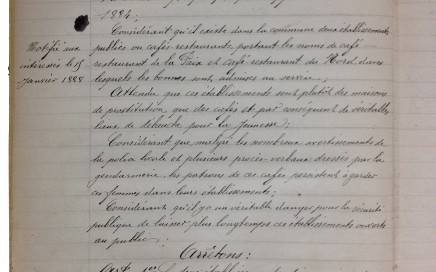 1884;
Considérant qu'il existe dans la commune deux établissements
publics ou cafés-restaurants, portant les noms de café
restaurant de la Paix et café restaurant du Nord dans
lesquels les bonnes sont admises au service;
Notifié aux
intéressés le 15
Janvier 1888
Attendu que ces établissements sont plutôt des maisons
de prostitution que des cafés et par conséquent de véritables
lieux de débauche pour la jeunesse;
Considérant que malgré les nombreux avertissements de
la police locale et plusieurs procès-verbaux dressés par la
gendarmerie, les patrons de ces cafés persistent à garder
ces femmes dans leurs établissements;
Considérant qu'il y a un véritable danger pour la sécurité
publique de laisser plus longtemps ces établissements ouverts
au public;
Arrêtons:
Art. 1er